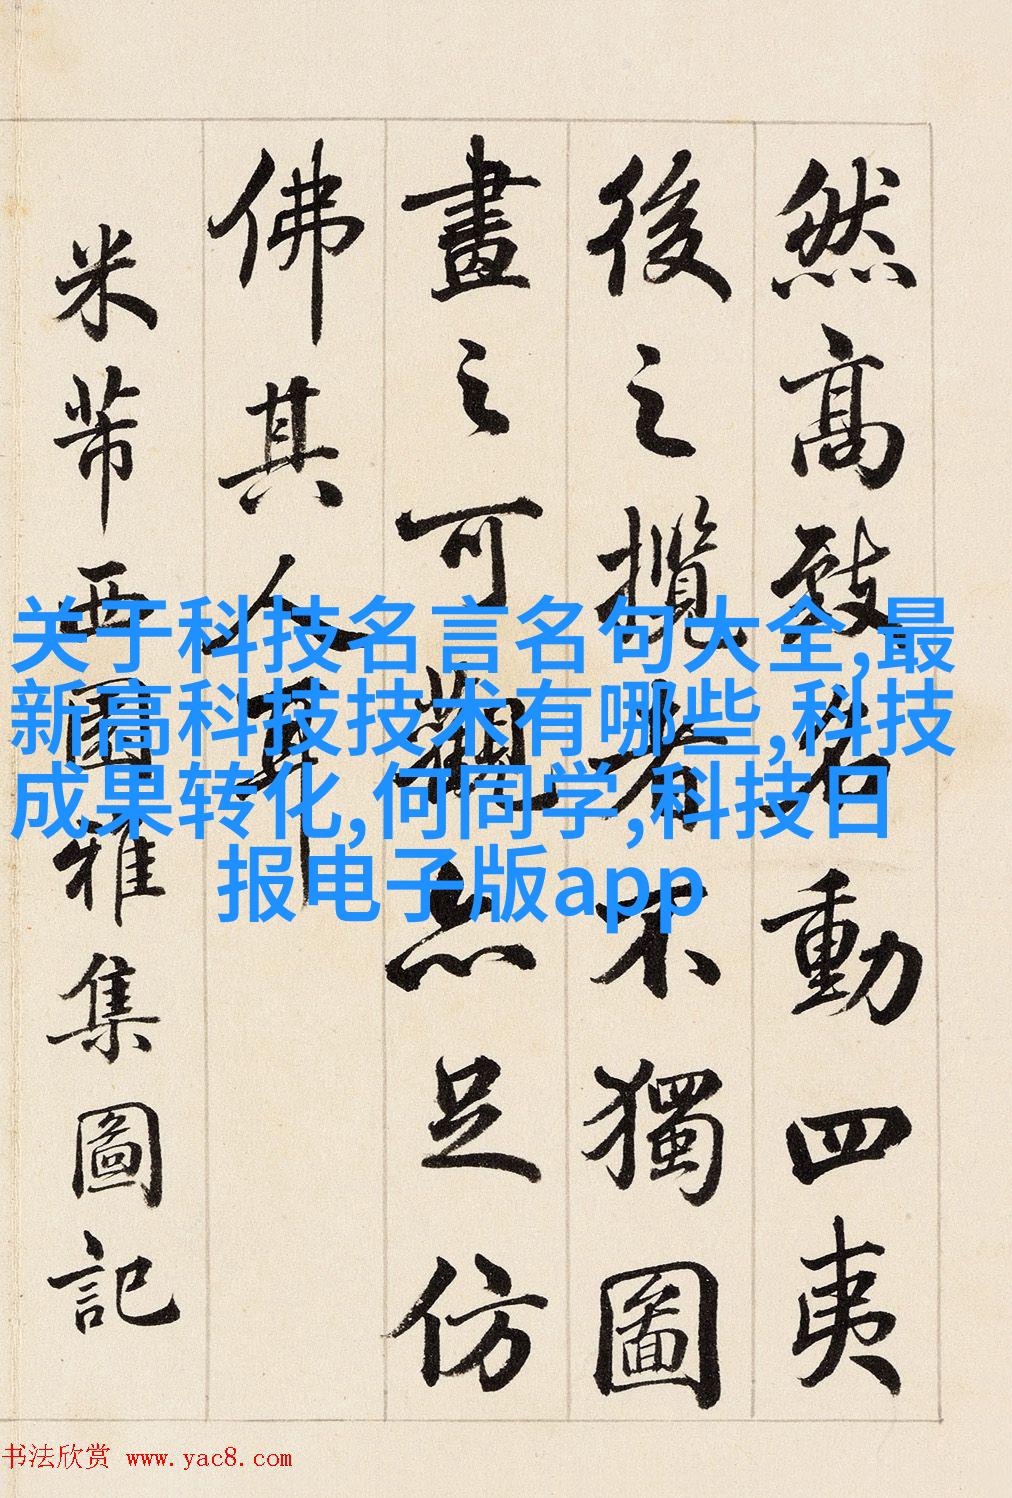 然高致名動四夷
後之攬者不獨圖
畫之可觀亦足仿
佛其人耳
米芾西園雅集圖記
关于科技名言名句大全,最
新高科技技术有哪些,科技
成果转化,何同学,科技日
报电子版app
书法欣赏 www.yac8.com